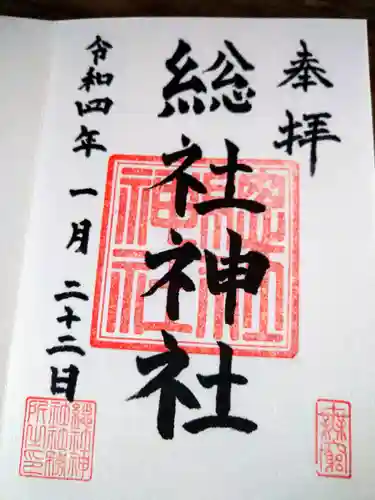 奉拝
総社神社
令和四年 一月 二十二日
總社神社
總社神社社務所之印